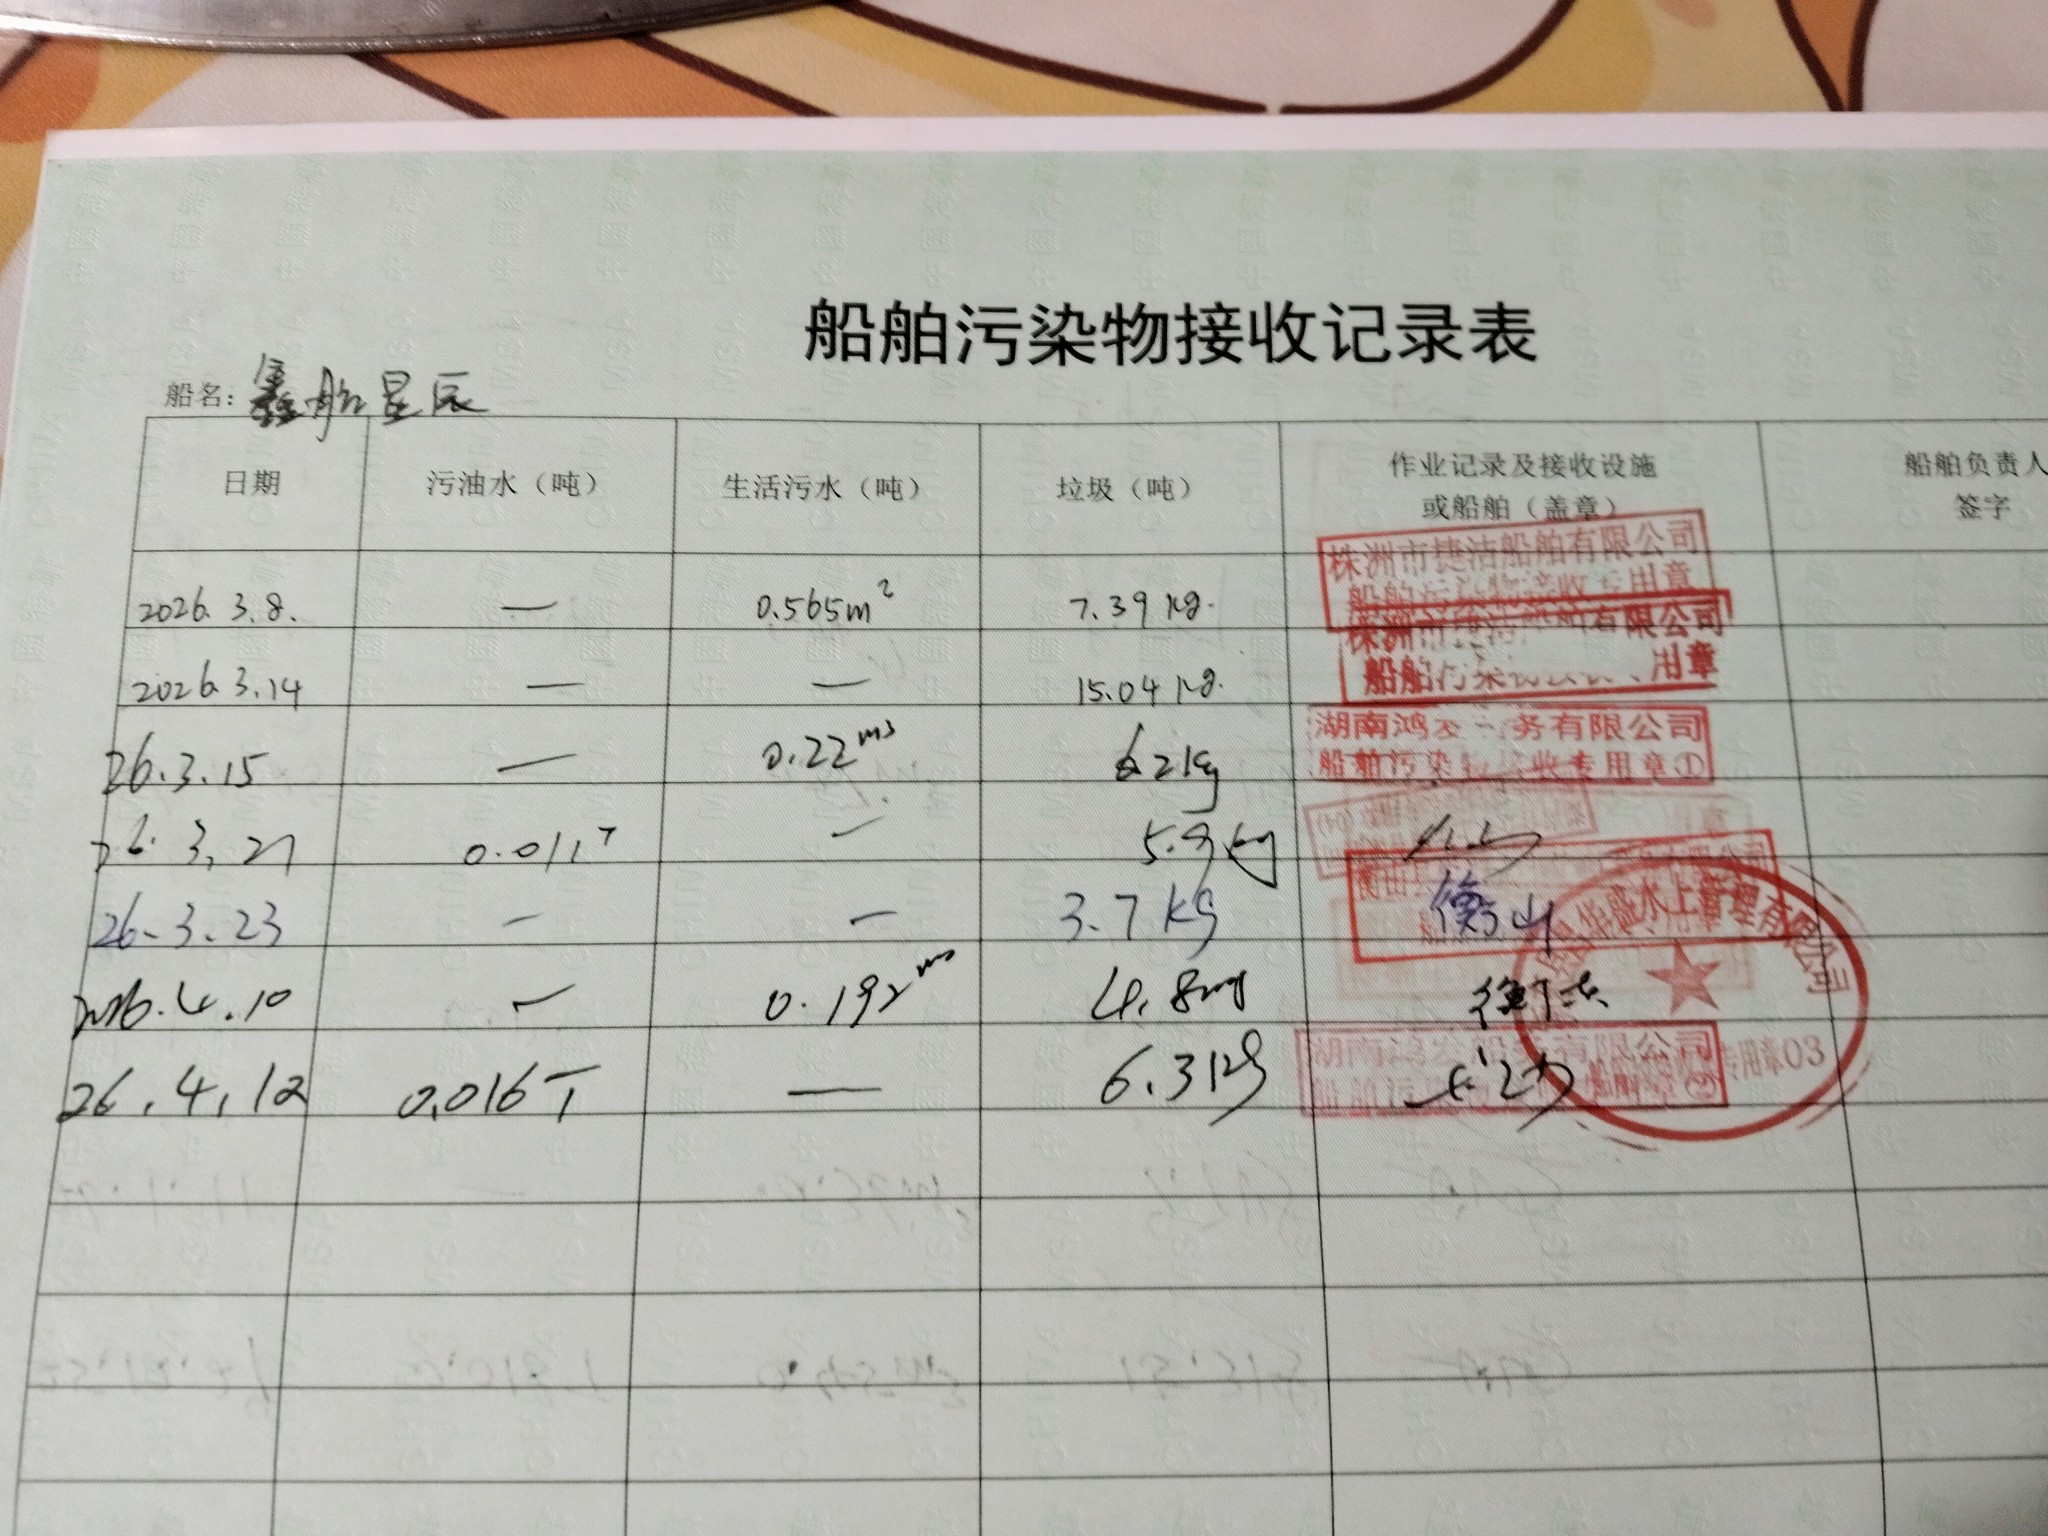 船舶污染物接收记录表
船名: 鑫船星辰
日期 污油水（吨） 生活污水（吨） 垃圾（吨） 作业记录及接收设施或船舶（盖章） 船舶负责人签字
2026.3.8. — 0.565m² 7.39kg.
株洲市捷洁船舶有限公司
船舶污染物接收专用章
2026.3.14 — — 15.04kg.
株洲市捷洁船舶有限公司
船舶污染物 用章
26.3.15 — 0.22m3 6.2kg
湖南鸿发 务有限公司
船舶污染物接收专用章①
26.3.21 0.011T — 5.9kg
26.3.23 — — 3.7KG 衡山
2026.4.10 — 0.192m3 4.8kg
华盛水上管理有限公司
专用章03
26.4.12 0.016T — 6.3kg
湖南鸿发船务有限公司
船舶污 ③